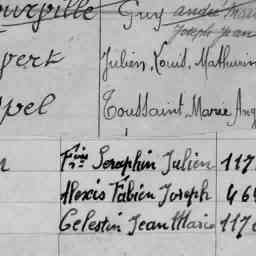 ourville Guy André Marie
Joseph Jean
pert Julien, Louis, Mathurin
pel Toussaint, Marie Ang
n Fçois Seraphin Julien 117
Alexis Fabien Joseph 464
Celestin Jean Marie 117